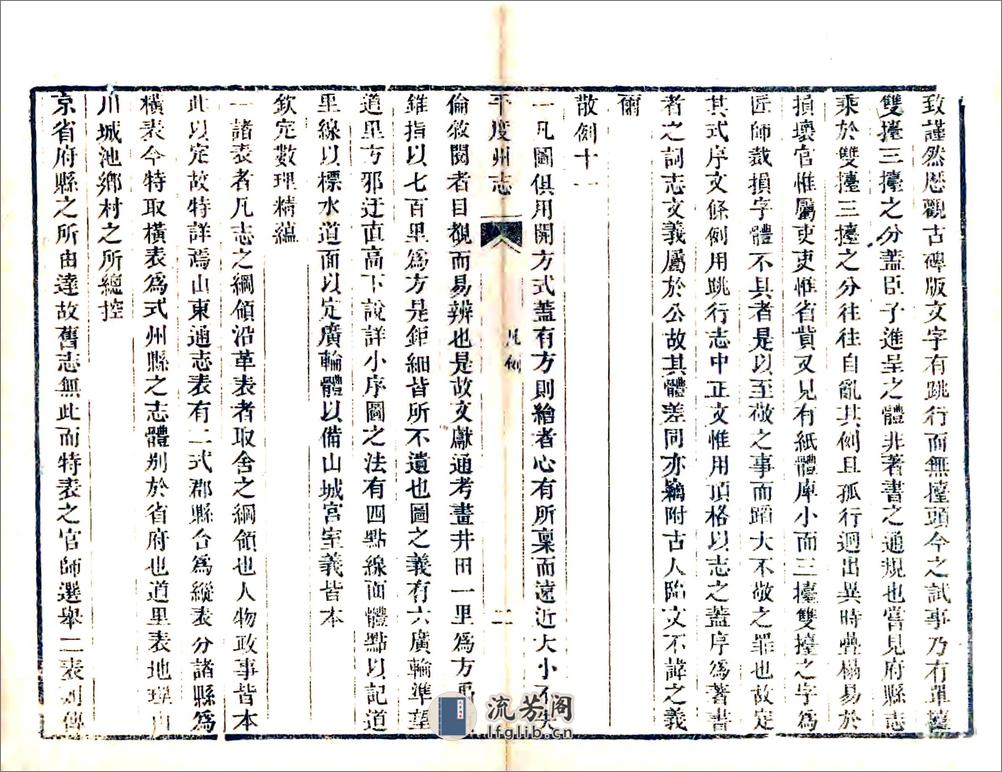 致謹然歷觀古碑版文字有跳行而無擡頭今之試事乃有單擡
雙擡三擡之分蓋臣子進呈之體非著書之通規也嘗見府縣志
乘於雙擡三擡之分往往自亂其例且孤行迥出異時疊榻易於
損壞官惟屬吏吏惟省貲又見有紙體庳小而三擡雙擡之字為
匠師裁損字體不具者是以至敬之事而蹈大不敬之罪也故定
其式序文條例用跳行志中正文惟用頂格以志之蓋序為著書
者之詞志文義屬於公故其體差同亦竊附古人臨文不諱之義
爾
散例十一
一凡圖俱用開方式蓋有方則繪者心有所稟而遠近大小不失
平度州志
凡例
二
倫敘閱者目覩而易辨也是故文獻通考畫井田一里為方禹
錐指以七百里為方是鉅細皆所不遺也圖之義有六廣輪準望
道里方邪迂直高下說詳小序圖之法有四點線面體點以記道
里線以標水道面以定廣輪體以備山城宮室義皆本
欽定數理精蘊
一諸表者凡志之綱領沿革表者取舍之綱領也人物政事皆本
此以定故特詳焉山東通志表有二式郡縣合為縱表分諸縣為
橫表今特取橫表為式州縣之志體別於省府也道里表地理山
川城池鄉村之所總控
京省府縣之所由達故舊志無此而特表之官師選舉二表列傳
流芳阁
lfglib.cn